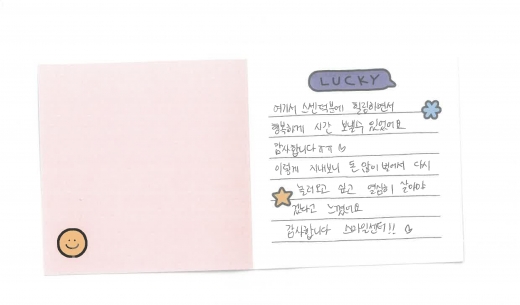 LUCKY
여기서 스센 덕분에 힐링하면서
행복하게 시간 보낼수 있었어요
감사합니다ㅠㅠ
이렇게 지내보니 돈 많이 벌어서 다시
놀러오고 싶고 열심히 살아야
겠다고 느꼈어요
감사합니다 스마일센터!!